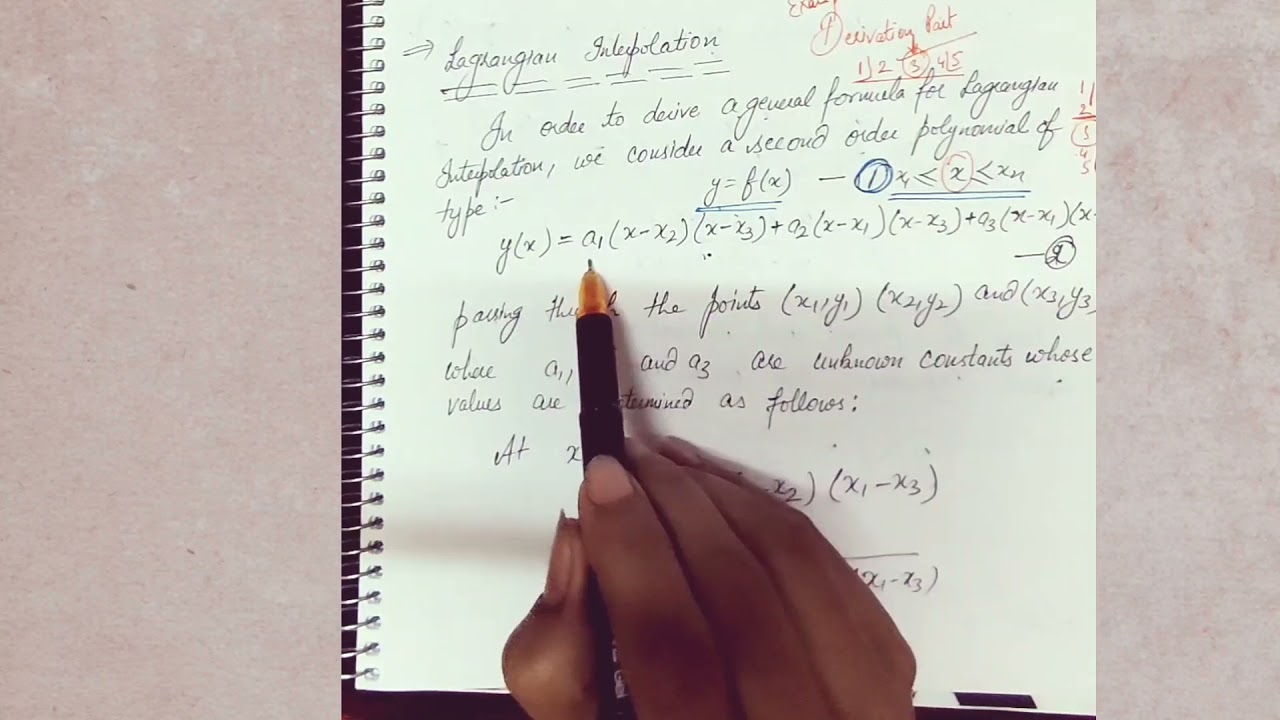 ⇒ Lagrangian Interpolation
① Derivation Part
1) 2 - ③ 4) 5
In order to derive a general formula for Lagrangian
Interpolation, we consider a second order polynomial of
type:-
y = f(x) — ① x₁ ≤ x ≤ xn
y(x) = a₁(x-x₂)(x-x₃)+a₂(x-x₁)(x-x₃)+a₃(x-x₁)(x-
— ②
passing the the points (x₁,y₁) (x₂,y₂) and (x₃,y₃
where a₁, and a₃ are unknown constants whose
values are determined as follows:
At x
x₂) (x₁-x₃)
(x₁-x₃)